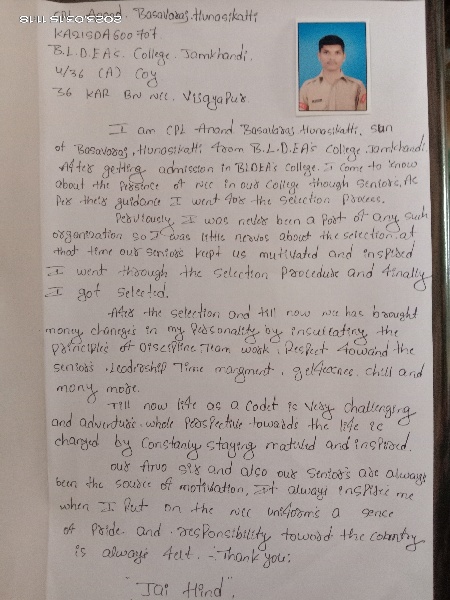 CPL Anand Basavaraj Hunasikatti
KA21SDA600707
B.L.D.EA's. College. Jamkhandi.
4/36 (A) Coy
36 KAR BN NCC. Vijayapur.
I am CPL Anand Basavaraj Hunasikatti. sun
of Basavaraj. Hunasikatti from B.L.D.EA's College. Jamkhandi
After getting admission in BLDEA's College. I come to know
about the Persence of NCC in our College though seniors, As
Per their guidance I went for the selection Process.
Perviously, I was never been a Part of any such
organization so I was little nervos about the selection, at
that time our seniors kept us mutivated and inspired
I went through the selection Procedure and finally
I got selected.
After the selection and till now NCC has brought
money changes in my Personality by insulcating the
Principles of Discipline Team work. Respect toward the
seniors. Leadership Time margment. chill and
mony more.
Till now life as a Cadet is very challenging
and adventure. whole Perspective towards the life is
changed by Constanly staying matived and inspired.
our Ano sir and also our senior's are always
been the source of motivation, It always inspire me
when I Put on the NCC uniform's a sence
of Pride and responsibility toward the country
is always felt. - Thank you.
"Jai Hind".